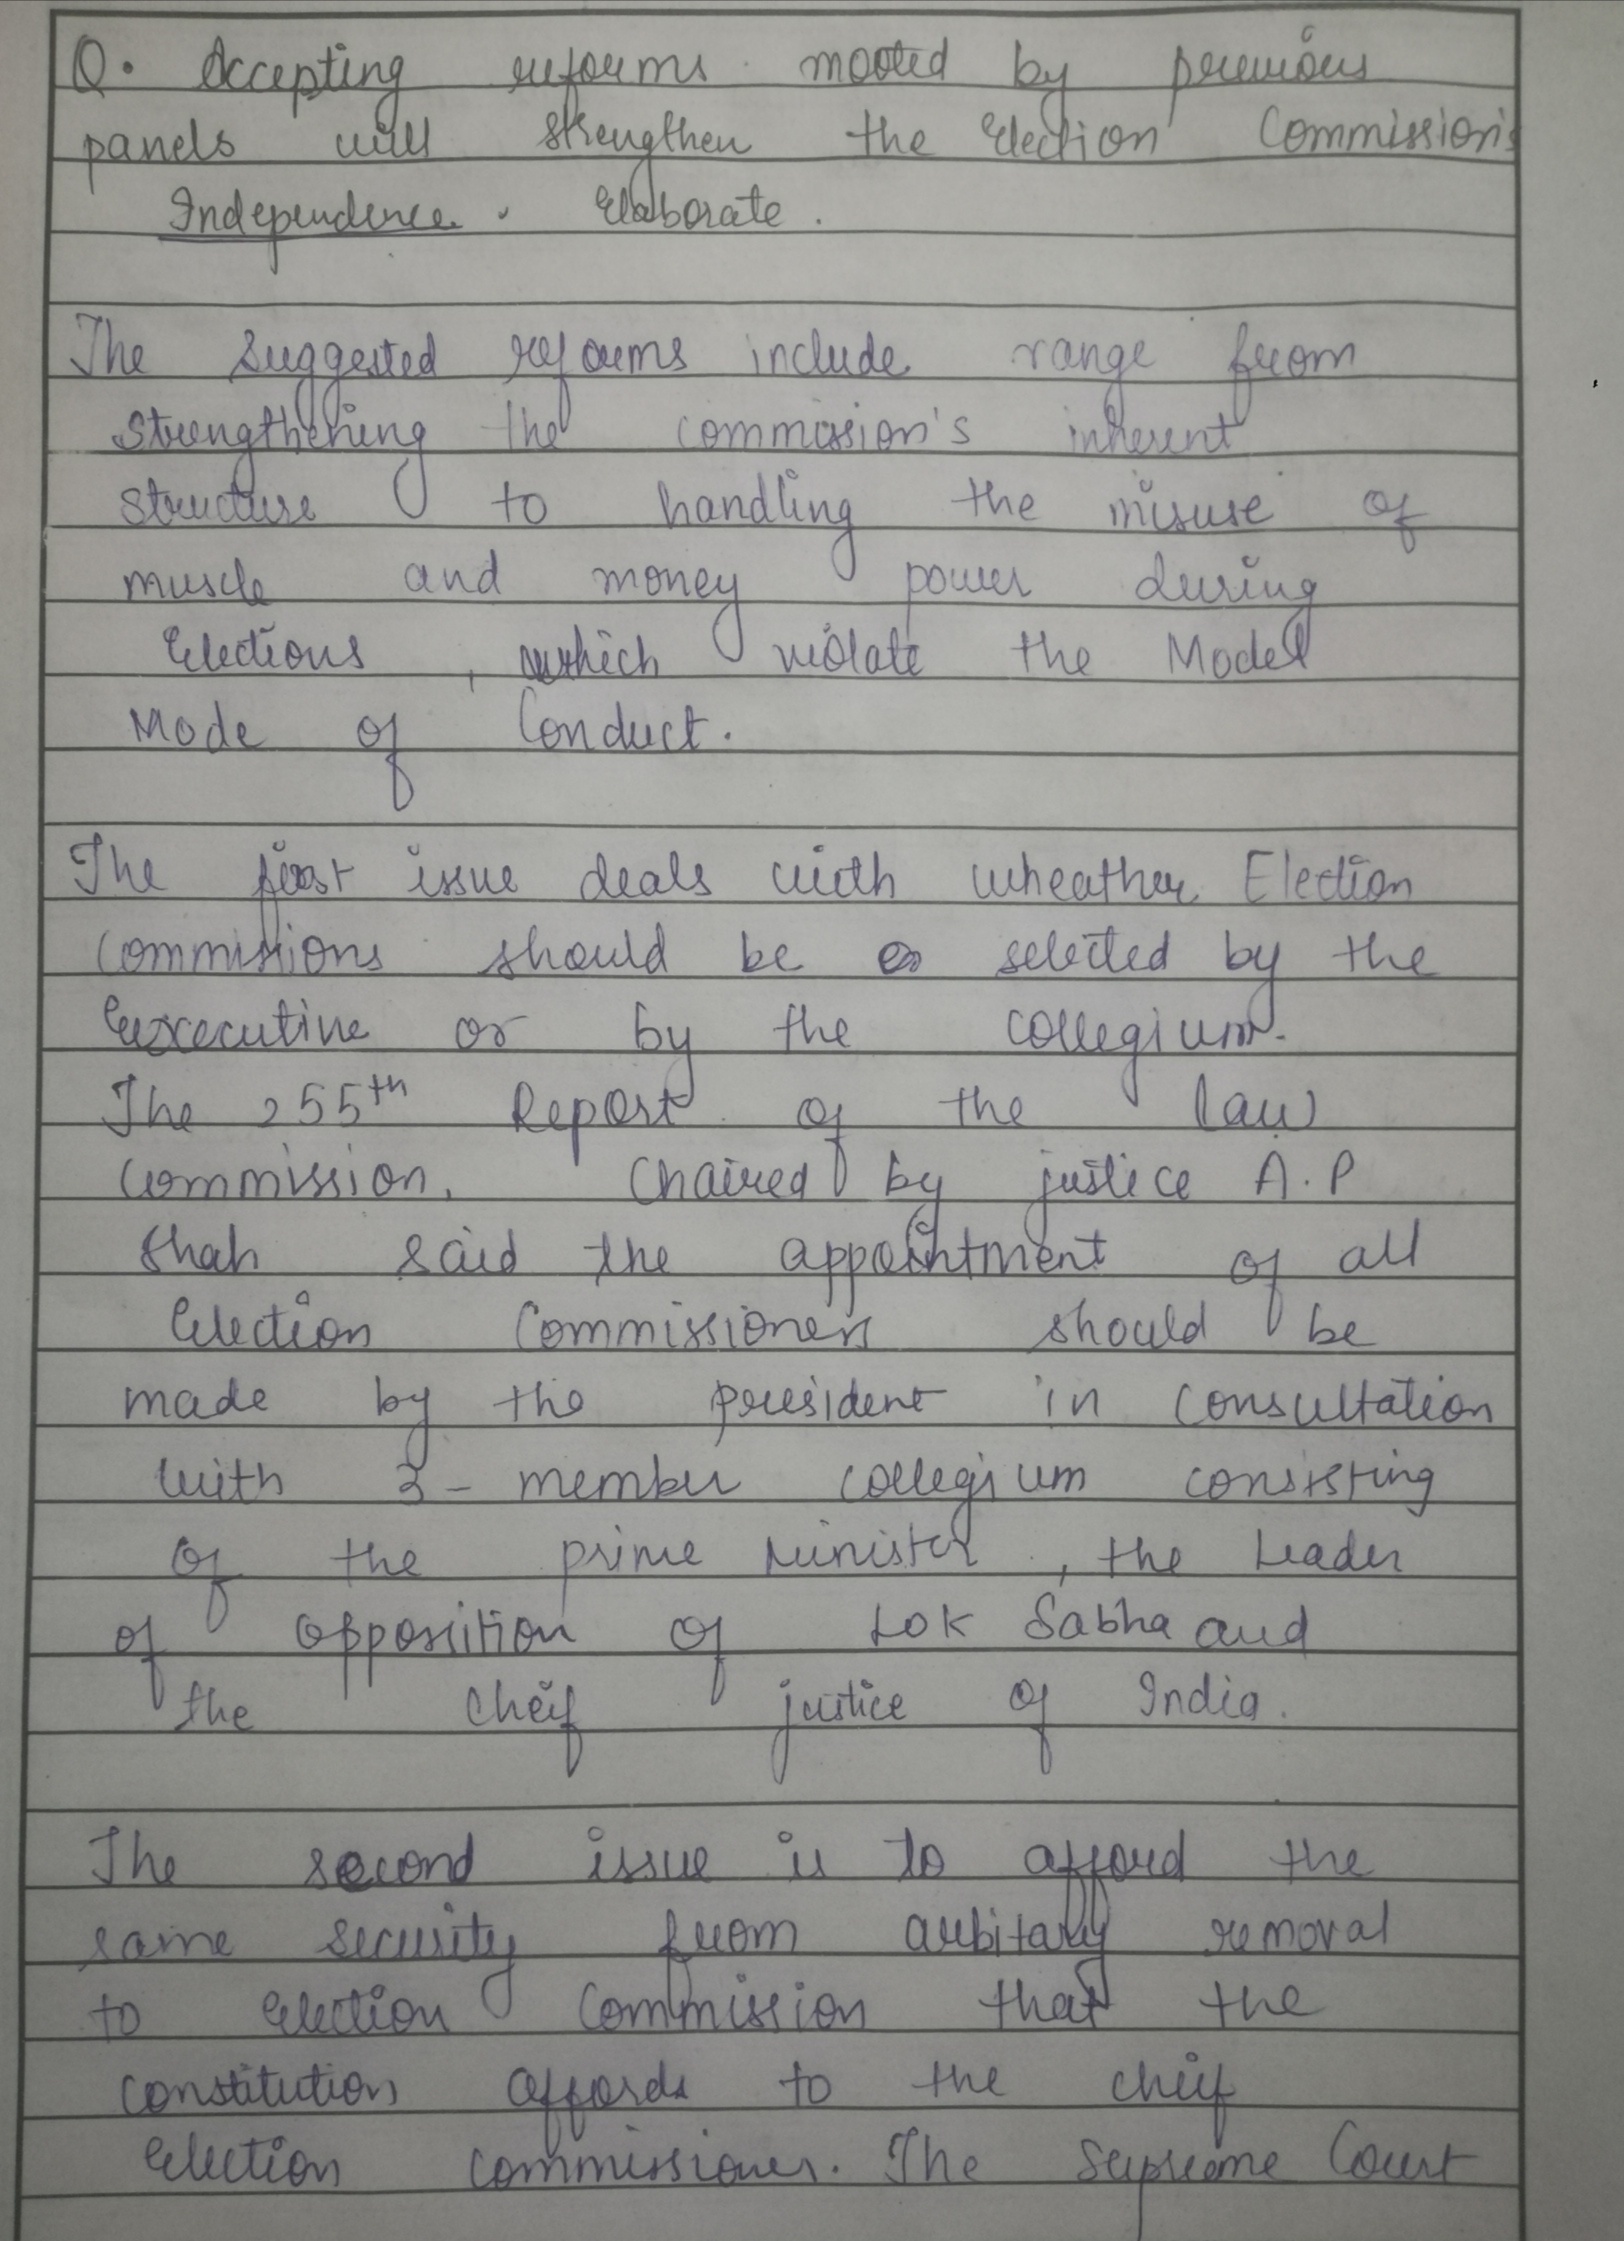 Q. Accepting reforms mooted by previous
panels will strengthen the Election Commission's
Independence. Elaborate.
The suggested reforms include range from
strengthening the commission's inherent
structure to handling the misuse of
muscle and money power during
Elections, which violate the Model
Mode of Conduct.
The first issue deals with wheather Election
Commissions should be selected by the
executive or by the collegium.
The 255th Report of the Law
Commission, Chaired by justice A.P
Shah said the appointment of all
Election Commissioners should be
made by the president in consultation
with 3-member collegium consisting
of the prime Minister, the Leader
of opposition of Lok Sabha and
the Cheif justice of India.
The second issue is to afford the
same security from arbitary removal
to Election Commission that the
constitution affords to the chief
Election commissioner. The Supreme Court